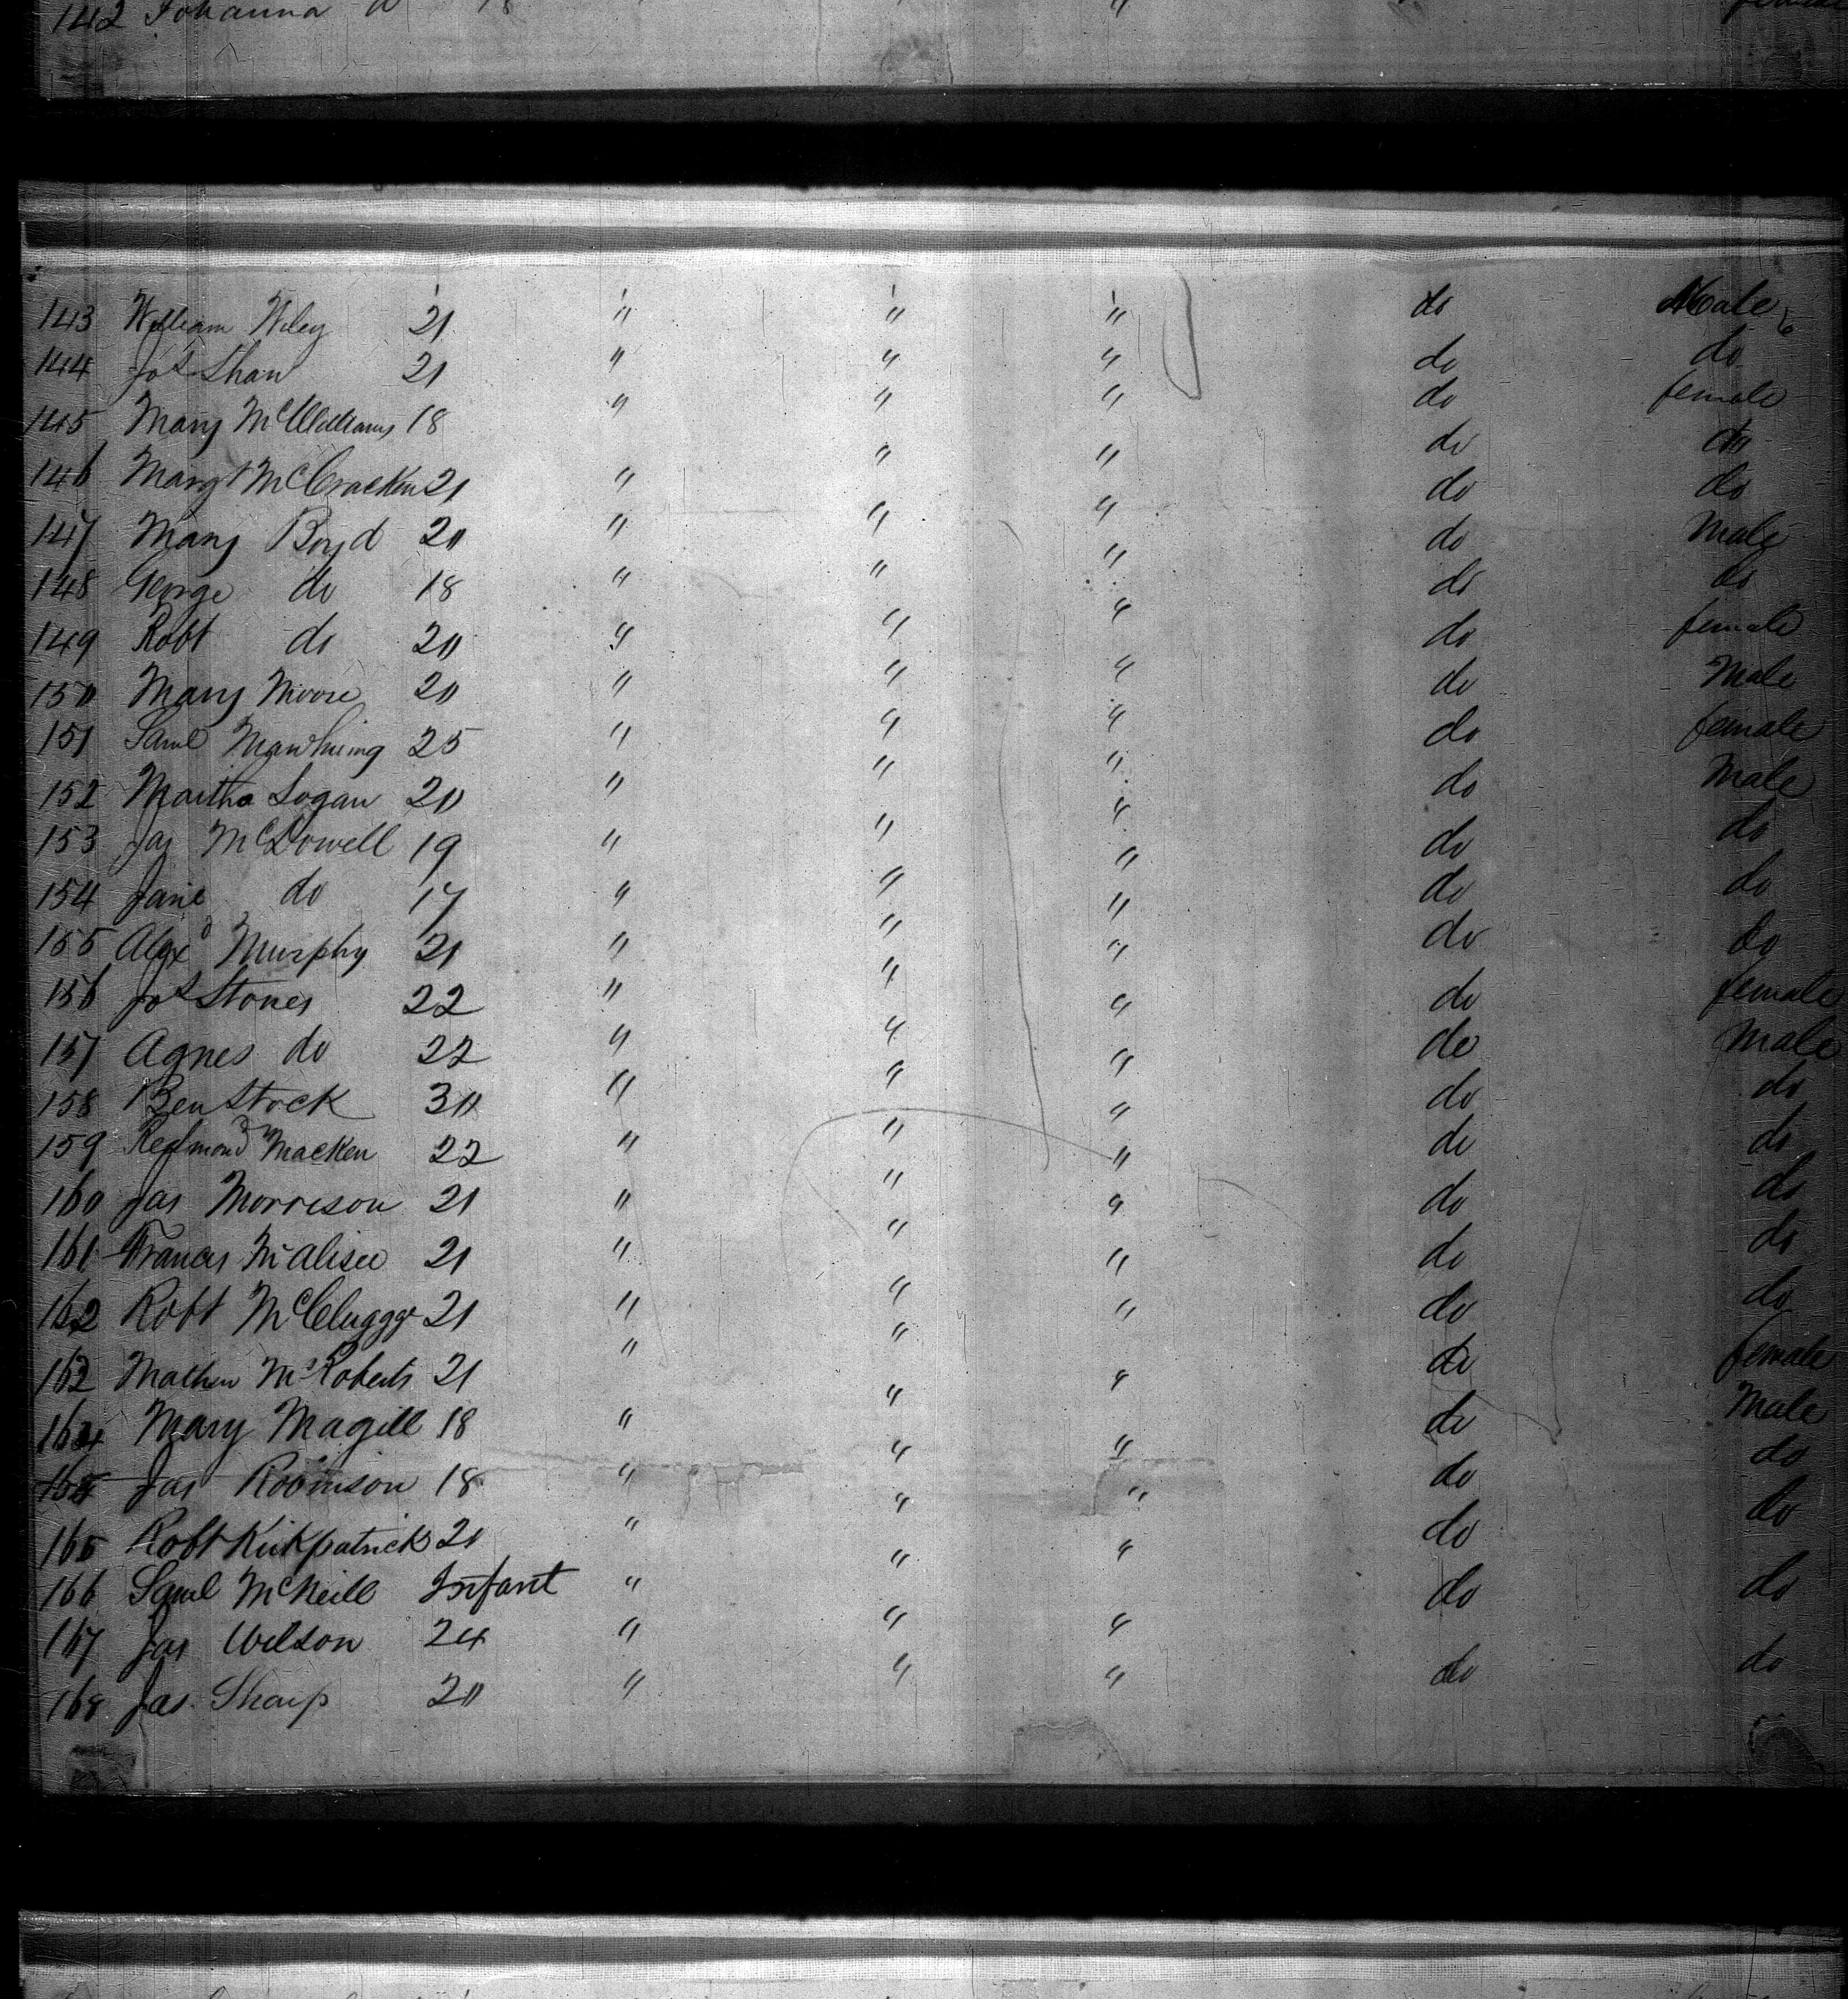 142 Johanna do 18 " female
143 William Wiley 21 " " " do Male
144 Jos Shaw 21 " " " do do
145 Mary McWilliams 18 " " " do female
146 Margt McCracken 21 " " " do do
147 Mary Boyd 20 " " " do do
148 George do 18 " " " do Male
149 Robt do 20 " " " do do
150 Mary Moore 20 " " " do female
151 Saml Mawhining 25 " " " do Male
152 Martha Logan 20 " " " do female
153 Jas McDowell 19 " " " do Male
154 Jane do 17 " " " do do
155 Alexd Murphy 21 " " " do do
156 Jos Stones 22 " " " do do
157 Agnes do 22 " " " do female
158 Ben Stock 30 " " " do Male
159 Redmond Macken 22 " " " do do
160 Jas Morrison 21 " " " do do
161 Francis McAlisee 21 " " " do do
162 Robt McCluggge 21 " " " do do
162 Mathew McRoberts 21 " " " do do
164 Mary Magill 18 " " " do female
165 Jas Robinson 18 " " " do Male
165 Robt Kirkpatrick 21 " " " do do
166 Saml McNeill Infant " " " do do
167 Jas Wilson 24 " " " do do
168 Jas. Sharp 20 " " " do do